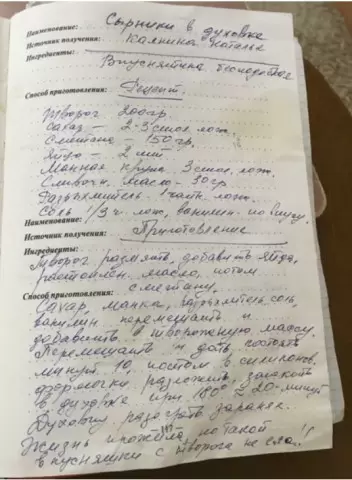 Наименование: Сырники в духовке
Источник получения: Калинина Наталья
Ингредиенты:
Вкуснятина бесподобная
Способ приготовления: Рецепт.
Творог 200гр.
Сахар – 2-3 стол. лож.
Сметана – 150 гр.
Яйцо – 2 шт
Манная крупа 3 стол. лож.
Сливочн. масло – 30 гр
Разрыхлитель 1 чайн. лож.
Соль 1/3 ч. лож, ванилин по вкусу.
Наименование:
Источник получения: Приготовление
Ингредиенты:
Творог размять, добавить яйца,
растоплен. масло, потом
сметану.
Способ приготовления:
Сахар, манка, разрыхлитель соль,
ванилин перемешать и
добавить в творожную массу.
Перемешать и дать постоять
минут 10, потом в силиконов.
формочки разложить, запекать
в духовке при 180° 20 минут
Духовку разогреть заранее.
Жизнь прожила, но такой
вкусняшки с творога не ела!!